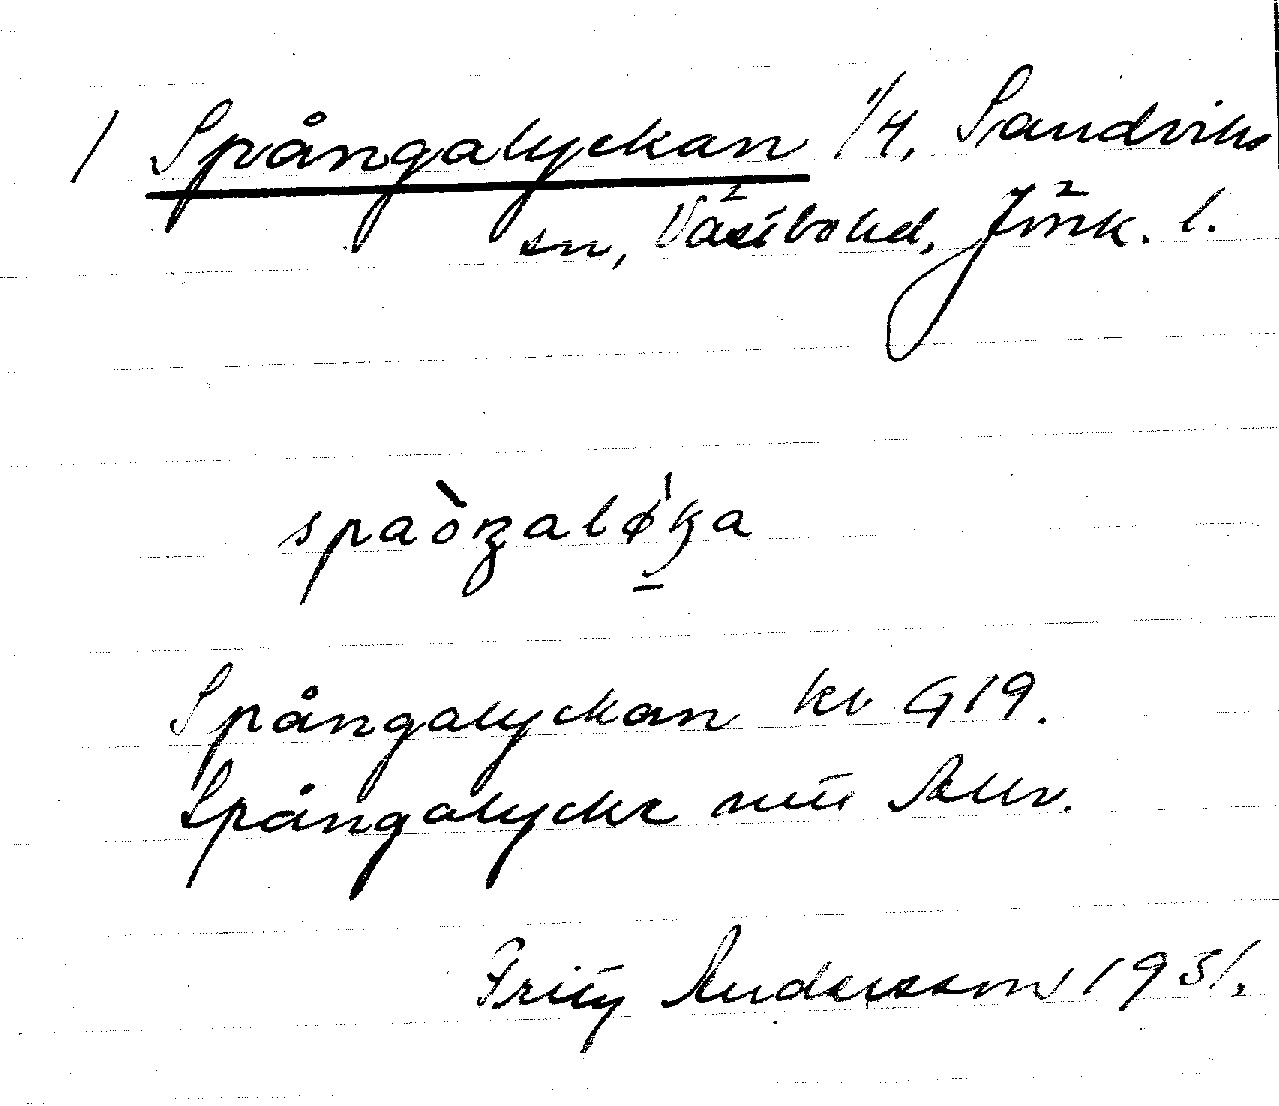 1 Spångalyckan 1/4, Sandviks
sn, Västbo hd, Jönk. l.
spaòŋalø̱ka
Spångalyckan kv G19.
Spångalycke
Fritz Andersson 1931.